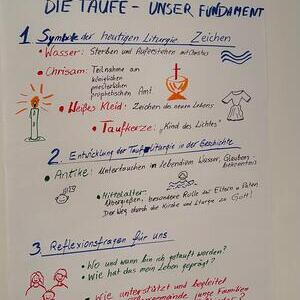 DIE TAUFE - UNSER FUNDAMENT
1 Symbole der heutigen Liturgie Zeichen
• Wasser: Sterben und Auferstehen mit Christus
• Chrisam: Teilnahme am
königlichen
priesterlichen
prophetischen Amt
• Weißes Kleid: Zeichen des neuen Lebens
• Taufkerze: "Kind des Lichtes"
2. Entwicklung der Taufliturgie in der Geschichte
• Antike: Untertauchen im lebendigem Wasser, Glaubens-
bekenntnis
• Mittelalter:
Übergießen, besondere Rolle der Eltern u. Paten
Der Weg durch die Kirche und Liturgie zu Gott!
3. Reflexionsfragen für uns
• Wo und wann bin ich getauft worden?
• Wie hat das mein Leben geprägt?
• Wie unterstützt und begleitet
junge Familien